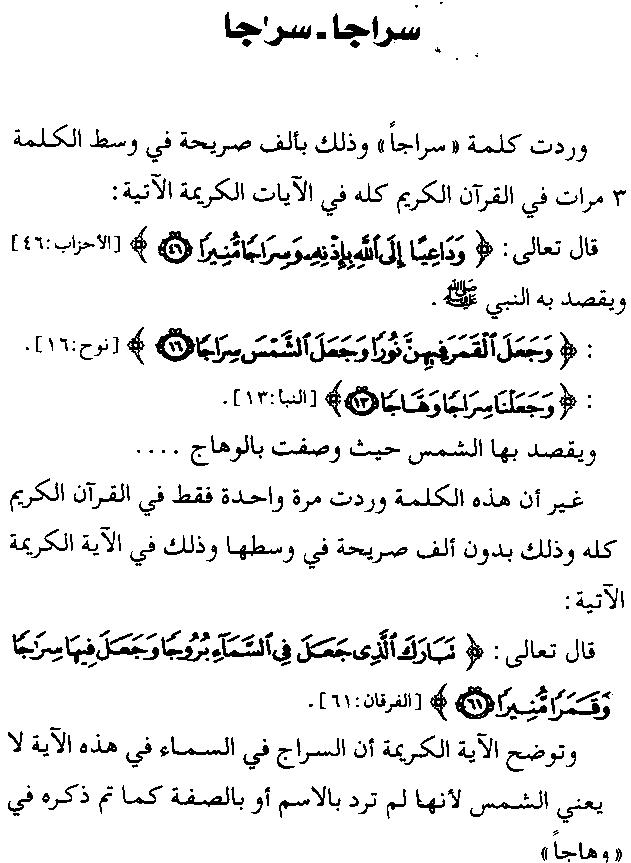 سراجا - سرٰجا
وردت كلمة «سراجاً» وذلك بألف صريحة في وسط الكلمة
٣ مرات في القرآن الكريم كله في الآيات الكريمة الآتية:
قال تعالى: ﴿وَدَاعِيًا إِلَى ٱللَّهِ بِإِذْنِهِۦ وَسِرَاجًا مُّنِيرًا ٤٦﴾ [الأحزاب:٤٦]
ويقصد به النبي ﷺ.
: ﴿وَجَعَلَ ٱلْقَمَرَ فِيهِنَّ نُورًا وَجَعَلَ ٱلشَّمْسَ سِرَاجًا ١٦﴾ [نوح:١٦].
: ﴿وَجَعَلْنَا سِرَاجًا وَهَّاجًا ١٣﴾ [النبأ:١٣].
ويقصد بها الشمس حيث وصفت بالوهاج ....
غير أن هذه الكلمة وردت مرة واحدة فقط في القرآن الكريم
كله وذلك بدون ألف صريحة في وسطها وذلك في الآية الكريمة
الآتية:
قال تعالى: ﴿تَبَارَكَ ٱلَّذِى جَعَلَ فِى ٱلسَّمَآءِ بُرُوجًا وَجَعَلَ فِيهَا سِرَٰجًا
وَقَمَرًا مُّنِيرًا ٦١﴾ [الفرقان:٦١].
وتوضح الآية الكريمة أن السراج في السماء في هذه الآية لا
يعني الشمس لأنها لم ترد بالاسم أو بالصفة كما تم ذكره في
«وهاجاً»